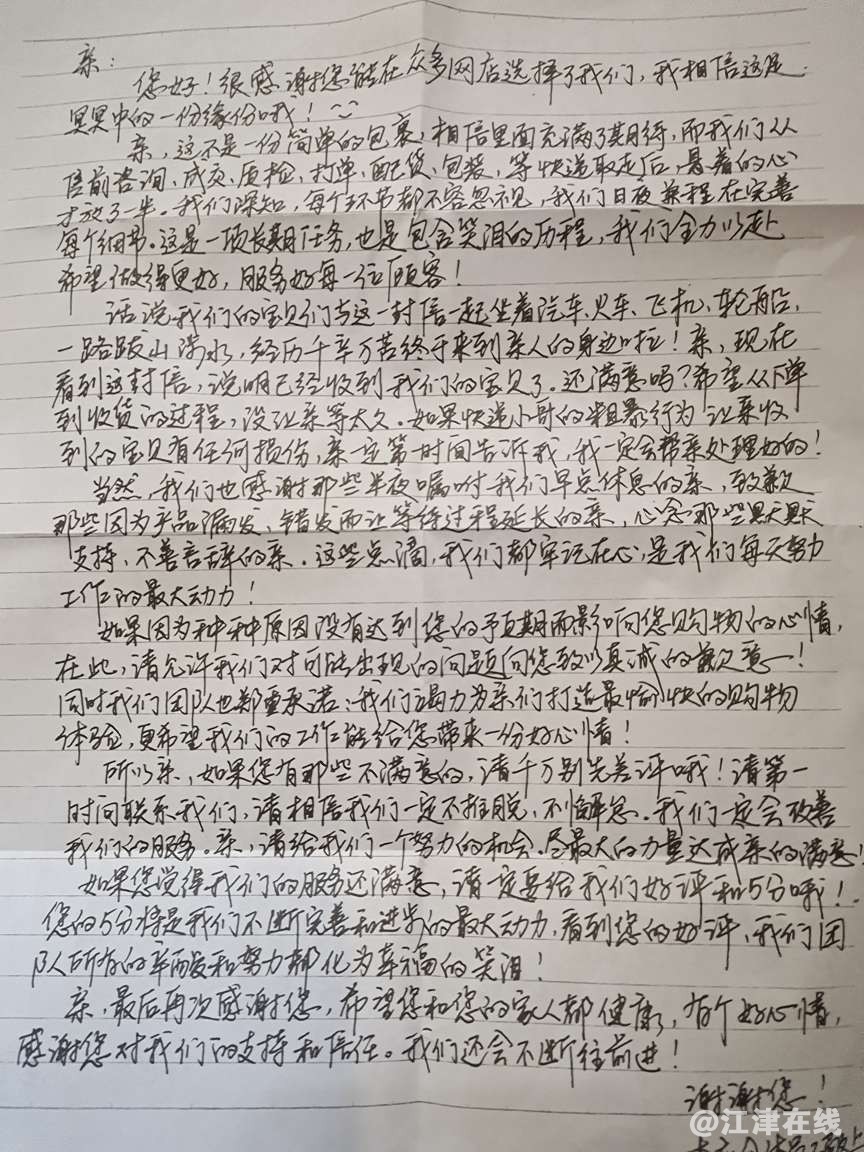 亲：
您好！很感谢您能在众多网店选择了我们，我相信这是
冥冥中的一份缘份哦！
亲，这不是一份简单的包裹，相信里面充满了期待，而我们从
售前咨询、成交、质检、打单、配货、包装，等快递取走后，悬着的心
才放了一半。我们深知，每个环节都不容忽视，我们日夜兼程在完善
每个细节。这是一项长期任务，也是包含笑泪的历程，我们全力以赴
希望做得更好，服务好每一位顾客！
话说我们的宝贝们与这一封信一起坐着汽车、火车、飞机、轮船，
一路跋山涉水，经历千辛万苦终于来到亲人的身边啦！亲，现在
看到这封信，说明已经收到我们的宝贝了。还满意吗？希望从下单
到收货的过程，没让亲等太久。如果快递小哥的粗暴行为让亲收
到的宝贝有任何损伤，亲一定第一时间告诉我，我一定会帮亲处理好的！
当然，我们也感谢那些半夜嘱咐我们早点休息的亲，致歉
那些因为产品漏发、错发而让等待过程延长的亲，心念那些默默
支持，不善言辞的亲。这些点滴，我们都牢记在心，是我们每天努力
工作的最大动力！
如果因为种种原因没有达到您的预期而影响您购物的心情，
在此，请允许我们对可能出现的问题向您致以真诚的歉意！
同时我们团队也郑重承诺：我们竭力为亲们打造最愉快的购物
体验，更希望我们的工作能给您带来一份好心情！
所以亲，如果您有那些不满意的，请千万别先差评哦！请第一
时间联系我们，请相信我们一定不推脱，不懈怠。我们一定会改善
我们的服务。亲，请给我们一个努力的机会。尽最大的力量达成亲的满意！
如果您觉得我们的服务还满意，请一定要给我们好评和5分哦！
您的5分将是我们不断完善和进步的最大动力，看到您的好评，我们团
队所有的辛酸和努力都化为幸福的笑泪！
亲，最后再次感谢您，希望您和您的家人都健康，有个好心情，
感谢您对我们的支持和信任。我们还会不断往前进！
谢谢您！
@江津在线